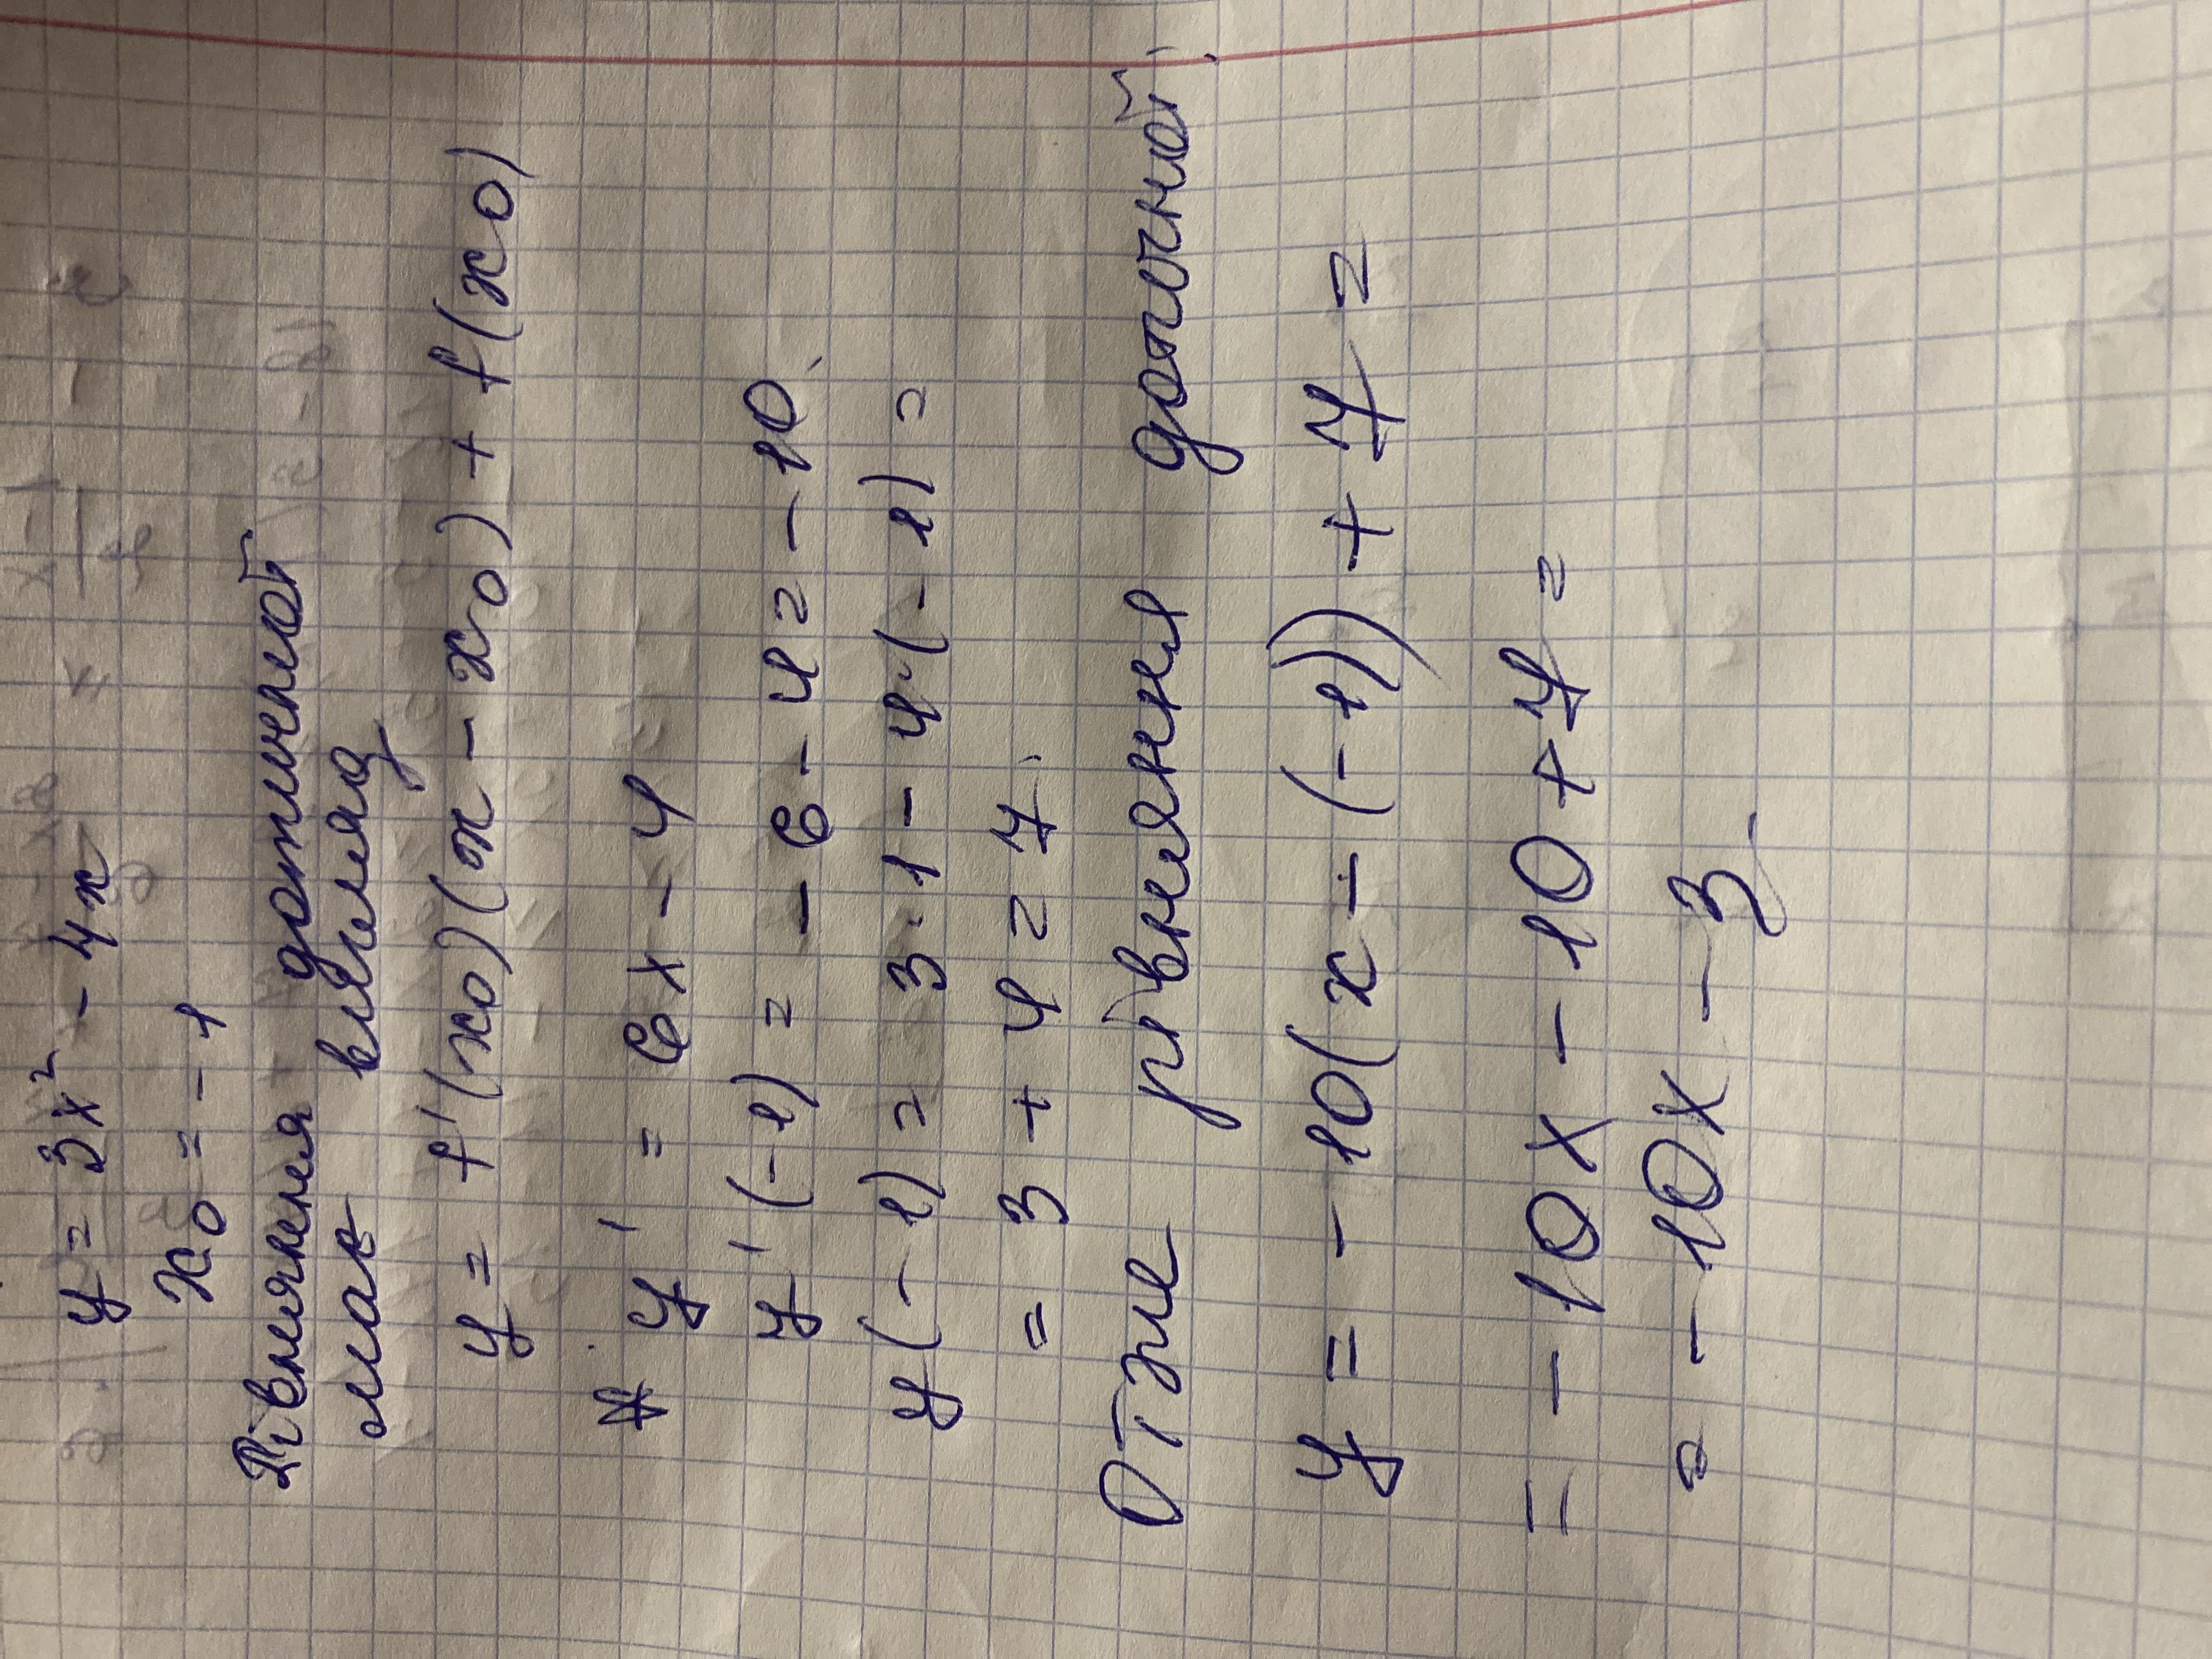 y = 3x² - 4x
x₀ = -1
Рівняння дотичной
має вигляд
y = f'(x₀)(x - x₀) + f(x₀)
y' = 6x - 4
y'(-1) = -6 - 4 = -10.
y(-1) = 3·1 - 4·(-1) =
= 3 + 4 = 7.
Отже рівняння дотичной:
y = -10(x - (-1)) + 7 =
= -10x - 10 + 7 =
= -10x - 3.